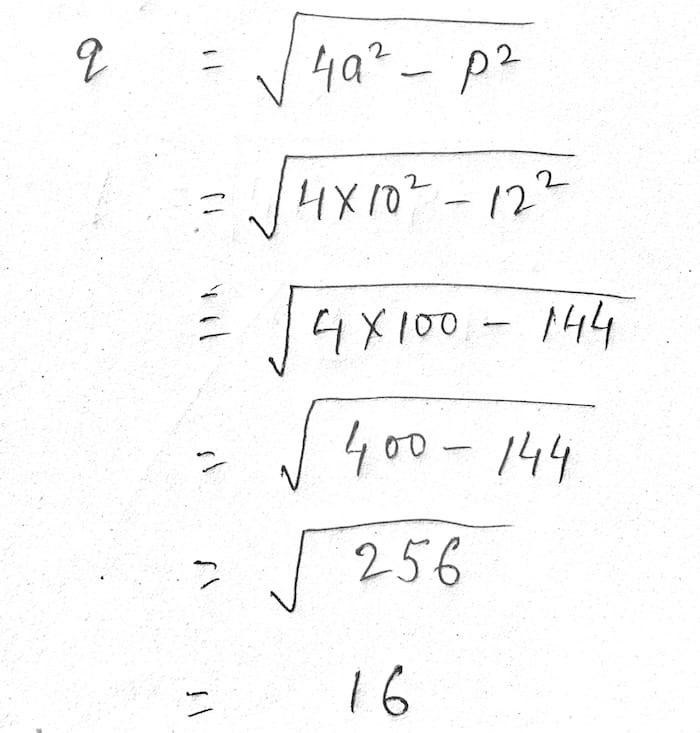 q = √(4a² - p²)
= √(4×10² - 12²)
= √(4×100 - 144)
= √(400 - 144)
= √256
= 16